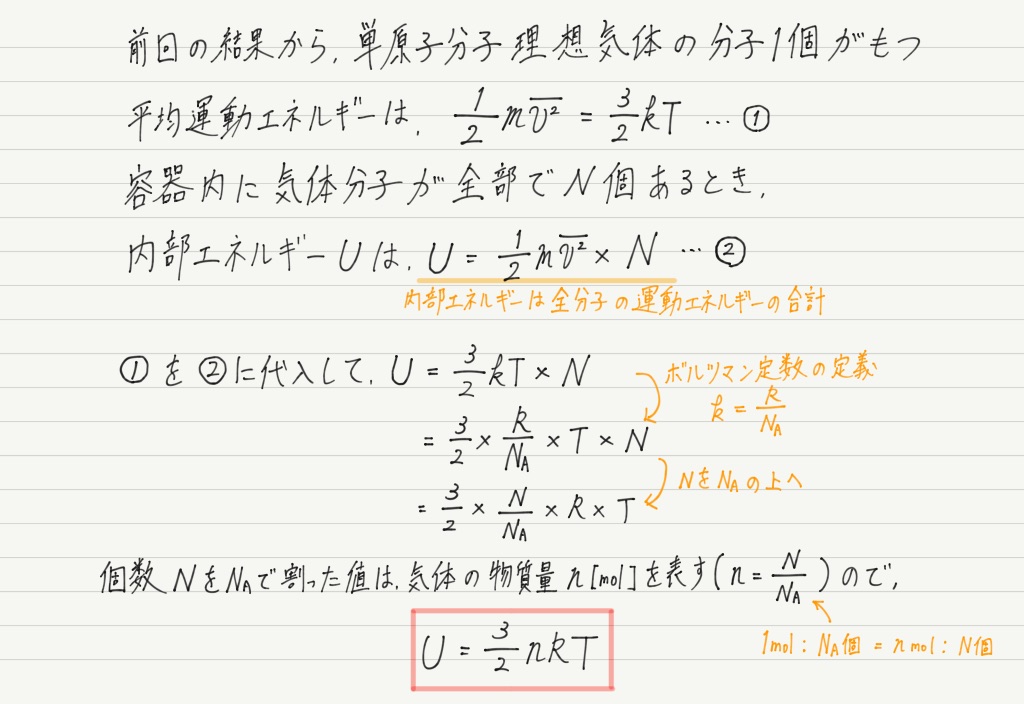 前回の結果から、単原子分子理想気体の分子1個がもつ
平均運動エネルギーは、 1/2 m v̅² = 3/2 kT … ①
容器内に気体分子が全部でN個あるとき、
内部エネルギーUは、U = 1/2 m v̅² × N … ②
内部エネルギーは全分子の運動エネルギーの合計
①を②に代入して、U = 3/2 kT × N
ボルツマン定数の定義
k = R/N_A
= 3/2 × R/N_A × T × N
NをN_Aの上へ
= 3/2 × N/N_A × R × T
個数NをN_Aで割った値は、気体の物質量n[mol]を表す(n = N/N_A)ので、
1mol : N_A個 = n mol : N個
U = 3/2 nRT